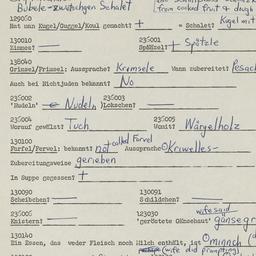 Bubele-zwutschgen Schalet
from cooked fruit & dough
129060
Hat man Kugel/Guggel/Koul gemacht? + = Schalet? Kugel mit
130010 232001
Zimmes? Spätzel? + Spätzle
138040
Grimsel/Frimsel: Aussprache? Krimsele Wann zubereitet? Pesac
Auch bei Nichtjuden bekannt? No
232002 232003
"Nudeln" Nudeln Lokschen?
232004 232005
Worauf gewälzt? Tuch Womit? Wärgelholz
130100
Farfel/Fervel: bekannt? not called Farvel Aussprache Kriwelles-
Zubereitungsweise gerieben
In Suppe gegessen? +
130090 130091
Scheibchen? Schildchen?
232005 123030 wife said
Knistern? "gerötete Ochsehaut" gänsegr
130140
Ein Essen, das weder Fleisch noch Milch enthält, ist minnch
(wife did prompting)